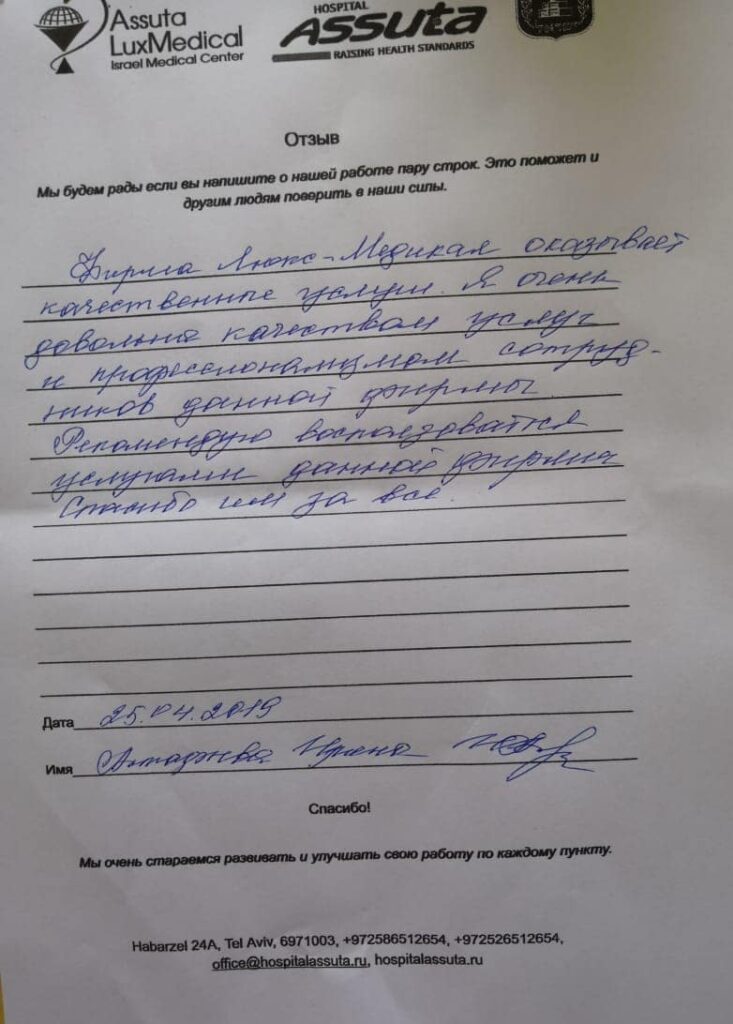 Assuta
LuxMedical
Israel Medical Center
HOSPITAL
Assuta
RAISING HEALTH STANDARDS
Отзыв
Мы будем рады если вы напишите о нашей работе пару строк. Это поможет и
другим людям поверить в наши силы.
Фирма Люкс-Медикал оказывает
качественные услуги. Я очень
довольна качеством услуг
и профессионализмом сотруд-
ников данной фирмы.
Рекомендую воспользоваться
услугами данной фирмы
Спасибо им за всё.
Дата 25.04.2019
Имя Ирина
Спасибо!
Мы очень стараемся развивать и улучшать свою работу по каждому пункту.
Habarzel 24A, Tel Aviv, 6971003, +972586512654, +972526512654,
office@hospitalassuta.ru, hospitalassuta.ru